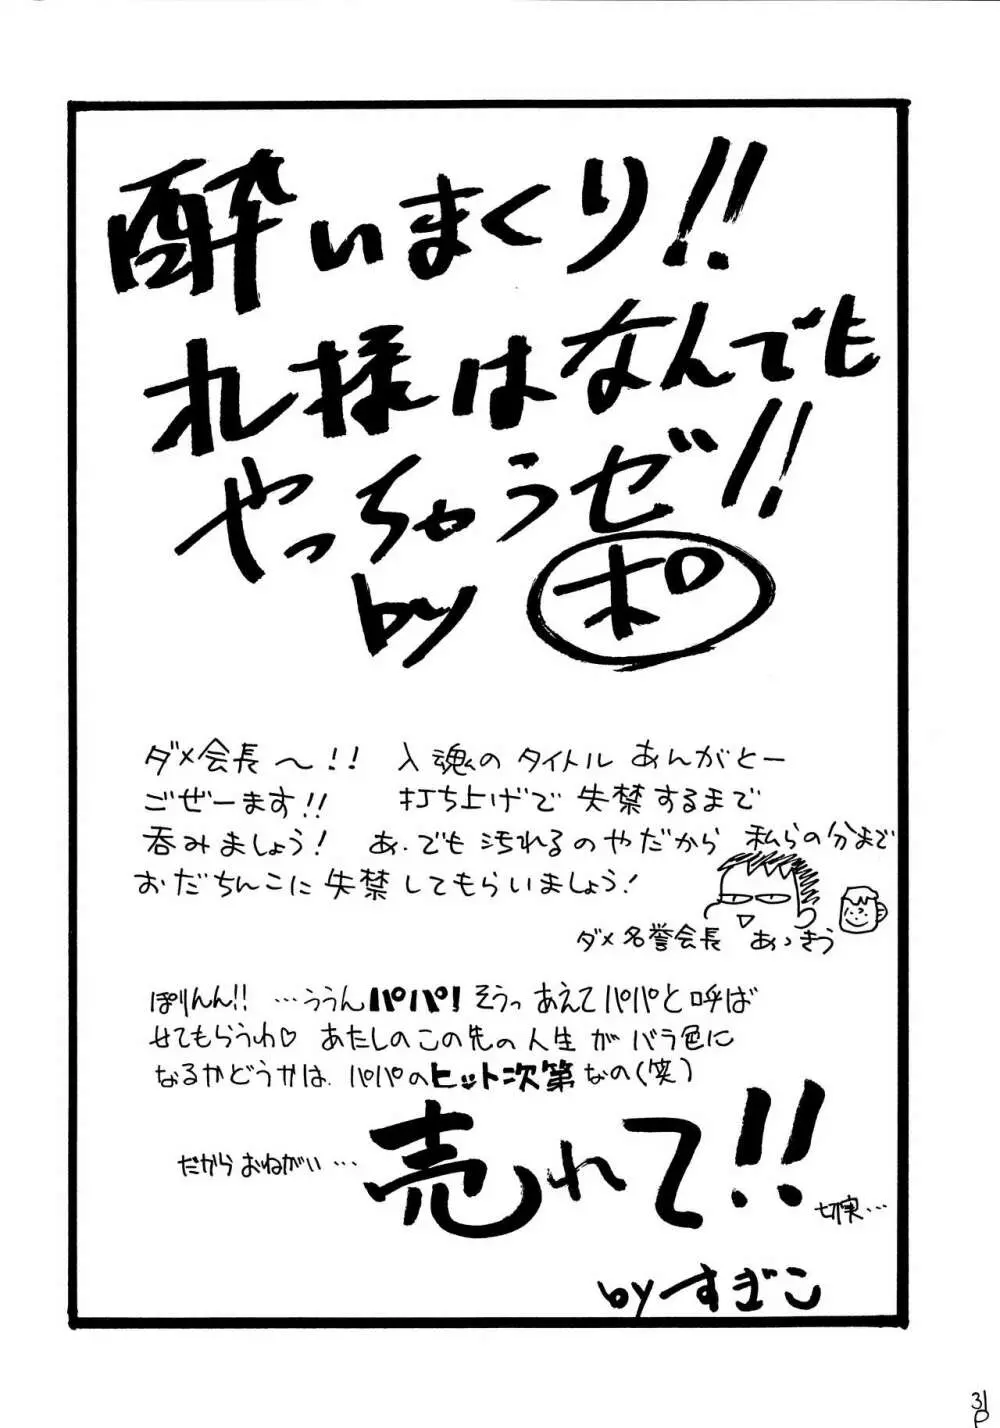 酔いまくり!!
れ様はなんでも
やっちゃうゼ!!
by ポ
ダメ会長〜!! 入魂のタイトル あんがとー
ごぜーます!! 打ち上げで 失禁するまで
呑みましょう! あ、でも 汚れるのやだから 私らの分まで
おだちんこに 失禁してもらいましょう!
ダメ名誉会長 あっきう
ぽりんん!! …ううんパパ! そうっ あえてパパと呼ば
せてもらうわ♡ あたしのこの先の人生が バラ色に
なるかどうかは、パパのヒット次第なの(笑)
だから おねがい… 売れて!!
切実…
by すぎこ
31
P